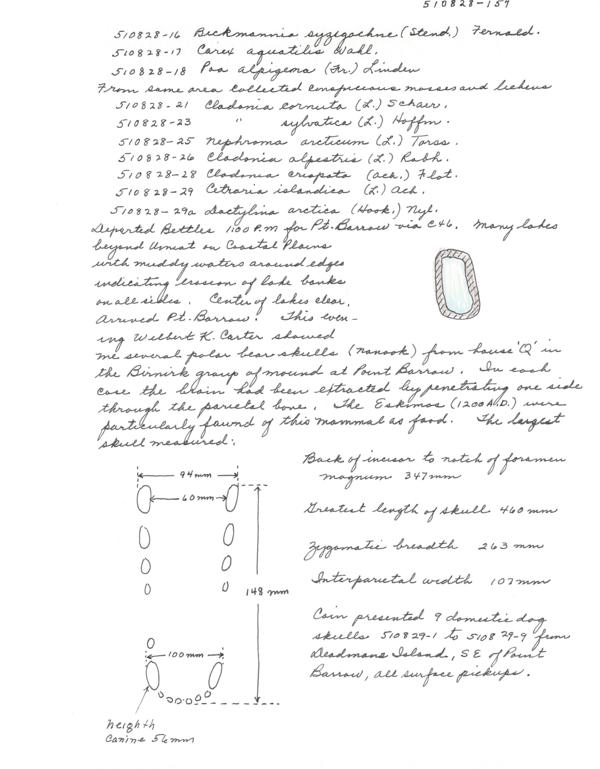 510828-159
510828-16 Beckmannia syzigachne (Stend.) Fernald.
510828-17 Carex aquatilis Wahl.
510828-18 Poa alpigema (Fr.) Linden
From same area collected conspicuous mosses and lichens
510828-21 Cladonia cornuta (L.) Schaer.
510828-23 " sylvatica (L.) Hoffm.
510828-25 Nephroma arcticum (L.) Torss.
510828-26 Cladonia alpestris (L.) Rabh.
510828-28 Cladonia crispata (Ach.) Flot.
510828-29 Cetraria islandica (L.) Ach.
510828-29a Dactylina arctica (Hook.) Nyl.
Departed Bettles 1:00 P.M for Pt. Barrow via C46. Many lakes
beyond Umiat on Coastal Plains
with muddy waters around edges
indicating erosion of lake banks
on all sides. Center of lakes clear.
Arrived Pt. Barrow. This even-
ing Wilbert K. Carter showed
me several polar bear skulls (nanook) from house 'Q' in
the Birnirk group of mound at Point Barrow. In each
case the brain had been extracted by penetrating one side
through the parietal bone. The Eskimos (1200 A.D.) were
particularly fawnd of this mammal as food. The largest
skull measured:
Back of incisor to notch of foramen
magnum 347mm
Greatest length of skull 460mm
Zygomatic breadth 263 mm
Interparietal width 107mm
Coin presented 9 domestic dog
skulls 510829-1 to 510829-9 from
Deadmans Island, SE of Point
Barrow, all surface pickups.
94mm
60mm
148 mm
100mm
heighth
Canine 56mm